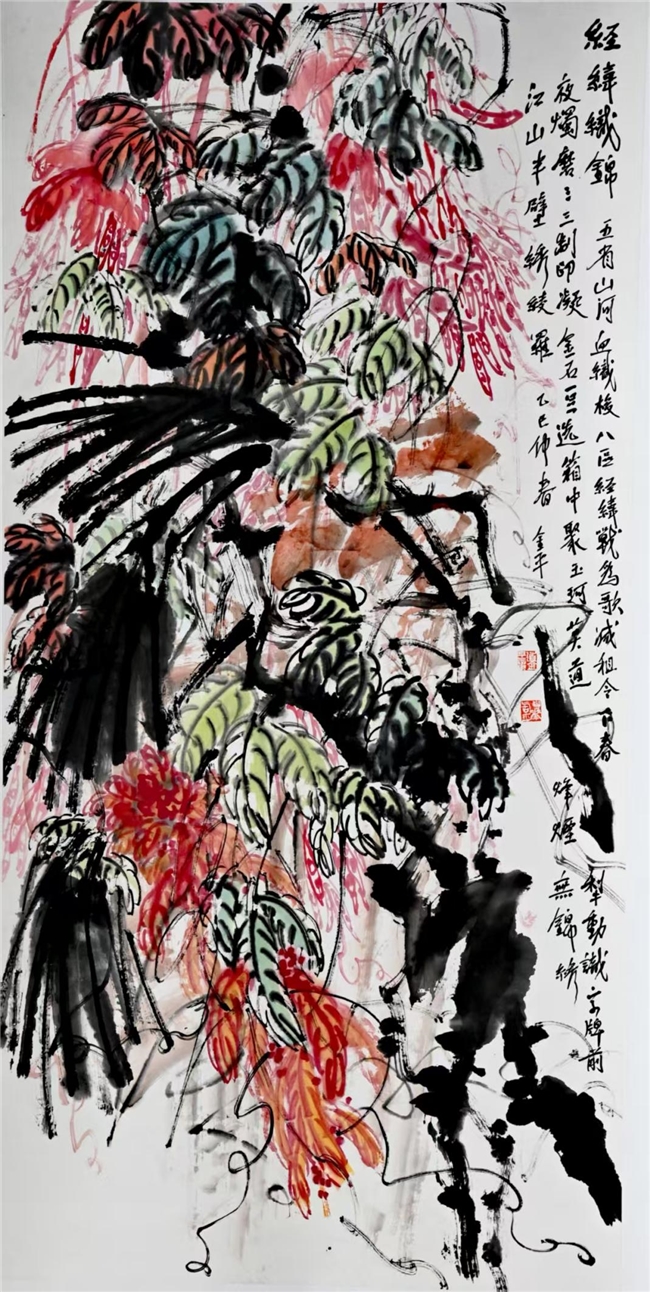 經緯織錦 五省山河血織梭 八區經緯戰為歌 減租令下春犁動 識字牌前
夜燭磨 三三制印凝金石 豆選箱中聚玉珂 莫道烽煙無錦綉
江山半壁綉綾羅 乙巳仲春 金平